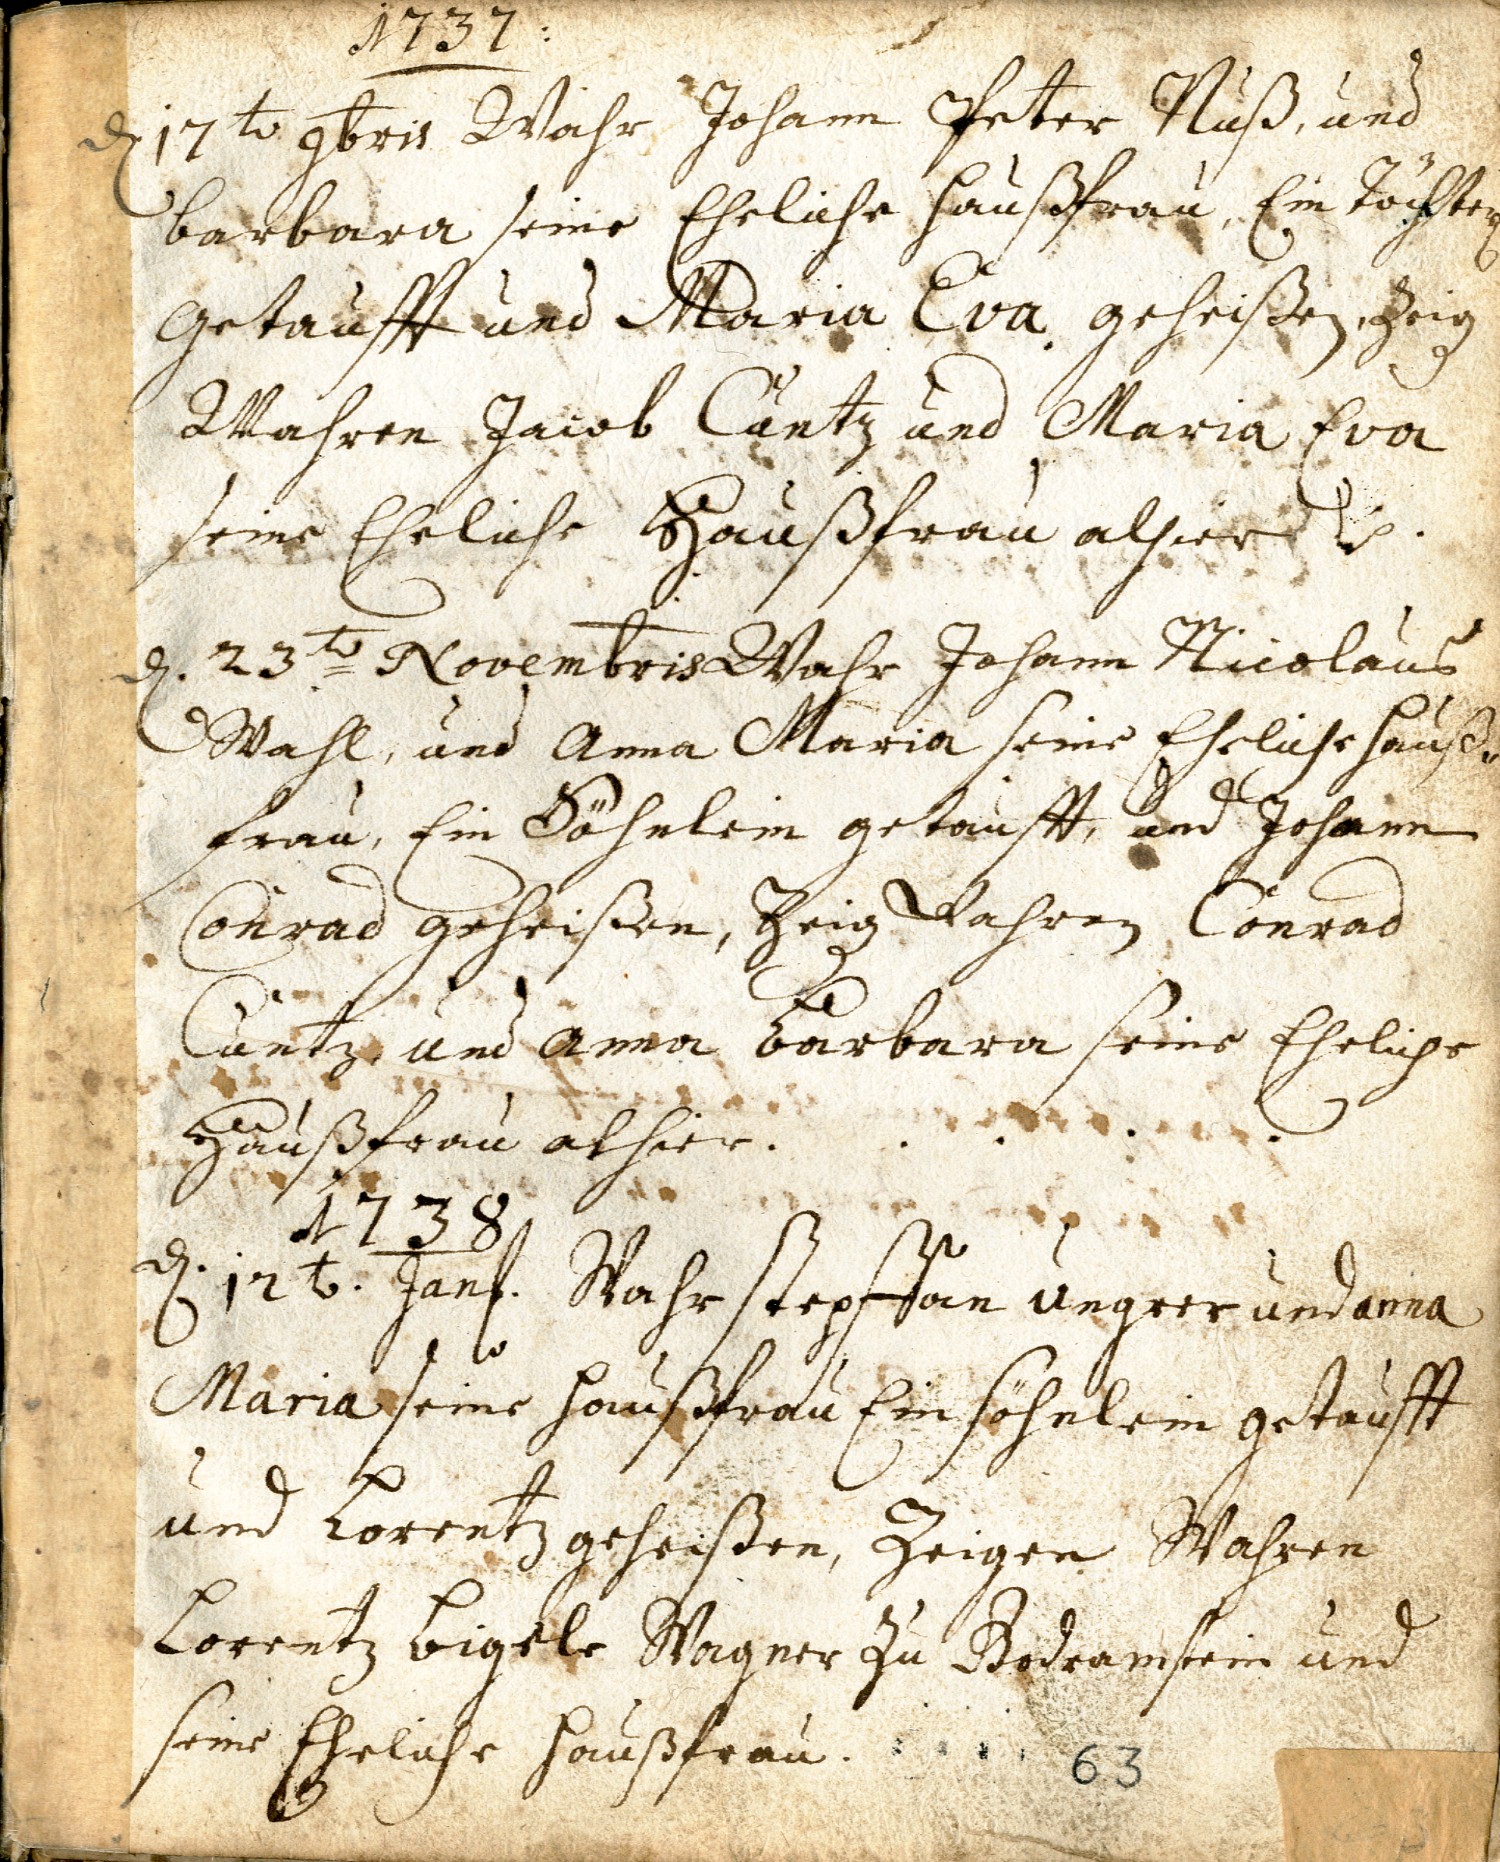 1737:
d. 17t. 9bris Wahr Johann Peter Nuß, und
barbara seine Eheliche haußfrau, Ein Töchter
getaufft und Maria Eva geheißen, Zeig
Wahren Jacob Cuntz und Maria Eva
seine Eheliche Haußfrau alhier
d. 23t. Novembris Wahr Johann Nicolaus
Wahl, und Anna Maria seine Eheliche hauß-
frau, Ein Söhnlein getaufft, und Johann
Conrad geheißen, Zeig Wahren Conrad
Cuntz, und Anna barbara seine Eheliche
Haußfrau alhier. . . . .
1738
d. 12t. Jan. Wahr stepffan ungrer und anna
Maria seine haußfrau Ein söhnlein getaufft
und Lorentz geheißen, Zeigen Wahren
Lorentz bigele Wagner zu Bodramstein und
seine Eheliche haußfrau.
63